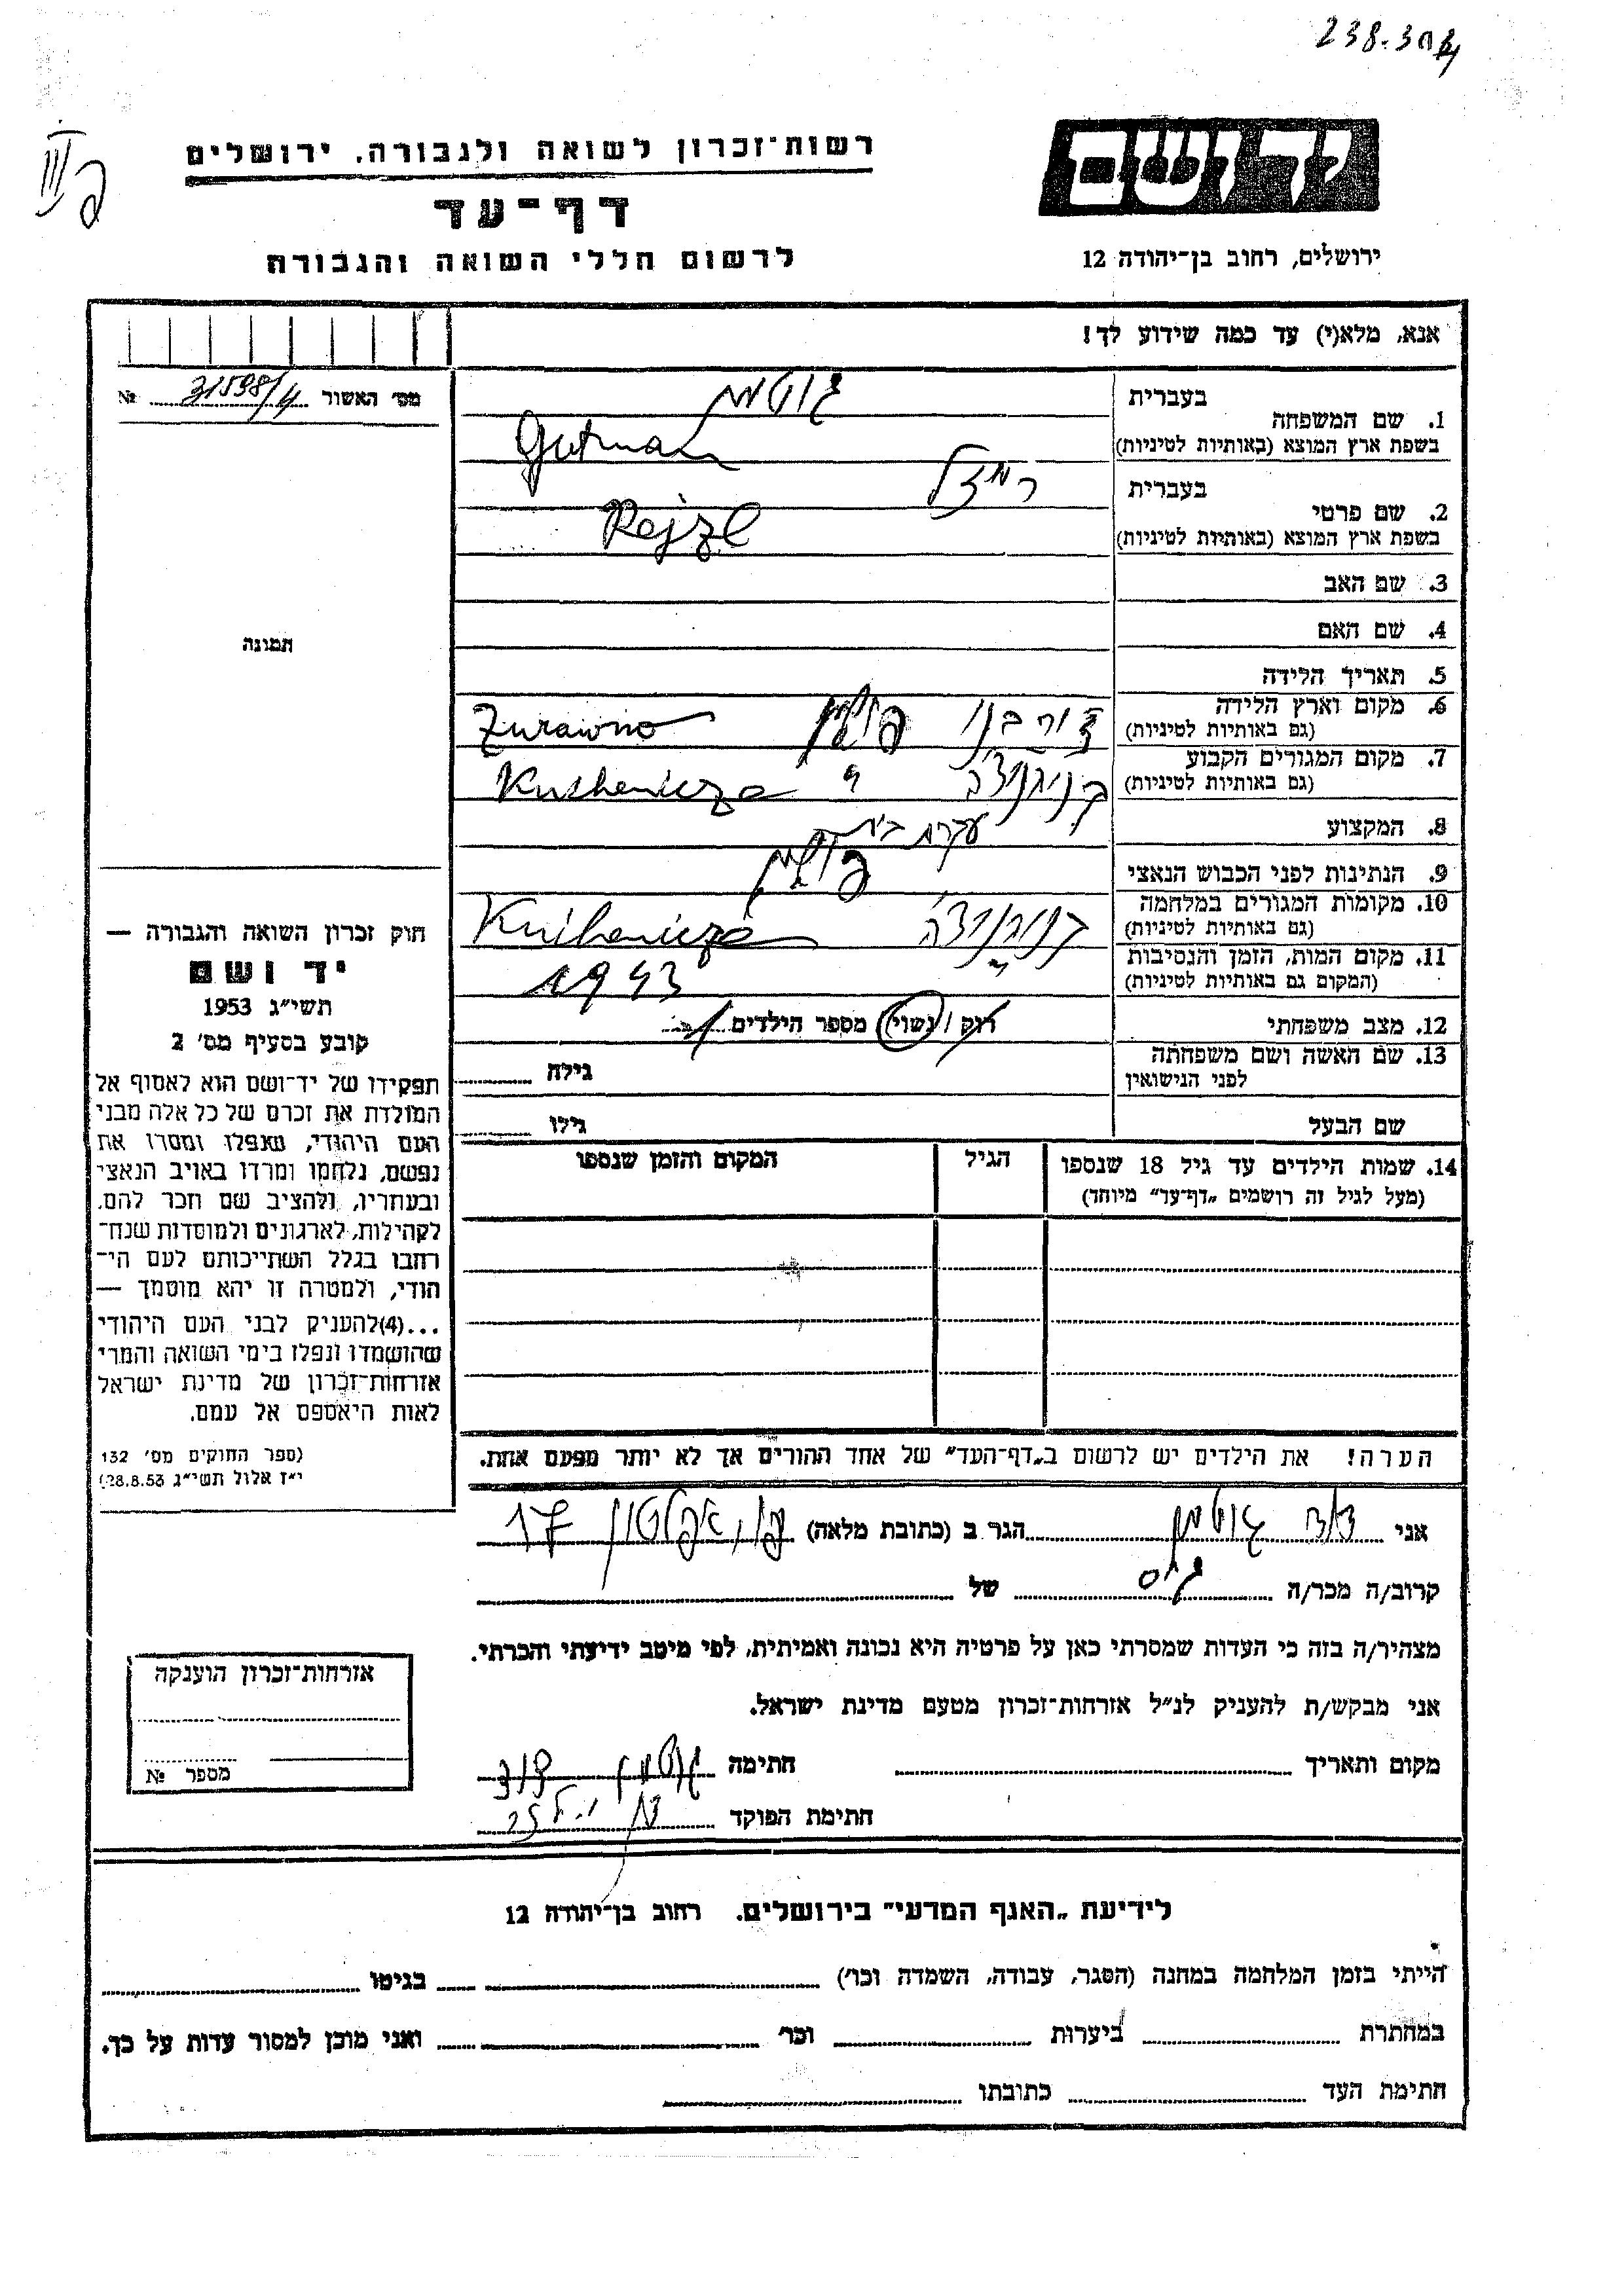 238.304
יד ושם
רשות־זכרון לשואה ולגבורה. ירושלים
דף־עד
לרשום חללי השואה והגבורה
ירושלים, רחוב בן־יהודה 12
אנא, מלא(י) עד כמה שידוע לך!
מס' האשור 31598/4 №
תמונה
1. שם המשפחה
בעברית גוטמן
בשפת ארץ המוצא (באותיות לטיניות) Gutman
2. שם פרטי
בעברית רייזל
בשפת ארץ המוצא (באותיות לטיניות) Rejzl
3. שם האב
4. שם האם
5. תאריך הלידה
6. מקום וארץ הלידה
(גם באותיות לטיניות) פולין Zurawno
7. מקום המגורים הקבוע
(גם באותיות לטיניות) " Knihenicze
8. המקצוע עקרת בית
9. הנתינות לפני הכבוש הנאצי פולין
10. מקומות המגורים במלחמה
(גם באותיות לטיניות) Knihenicze
11. מקום המות, הזמן והנסיבות
(המקום גם באותיות לטיניות) " 1943
12. מצב משפחתי רוק / נשוי מספר הילדים
13. שם האשה ושם משפחתה
לפני הנישואין גילה
שם הבעל גילו
14. שמות הילדים עד גיל 18 שנספו הגיל המקום והזמן שנספו
(מעל לגיל זה רושמים „דף־עד" מיוחד)
הערה! את הילדים יש לרשום ב„דף־העד" של אחד ההורים אך לא יותר מפעם אחת.
חוק זכרון השואה והגבורה —
יד ושם
תשי״ג 1953
קובע בסעיף מס' 2
תפקידו של יד־ושם הוא לאסוף אל
המולדת את זכרם של כל אלה מבני
העם היהודי, שנפלו ומסרו את
נפשם, נלחמו ומרדו באויב הנאצי
ובעוזריו, ולהציב שם וזכר להם,
לקהילות, לארגונים ולמוסדות שנח־
רבו בגלל השתייכותם לעם הי־
הודי, ולמטרה זו יהא מוסמך —
...(4)להעניק לבני העם היהודי
שהושמדו ונפלו בימי השואה והמרי
אזרחות־זכרון של מדינת ישראל
לאות היאספם אל עמם.
(ספר החוקים מס' 132
י״ז אלול תשי״ג 28.8.53)
אני דוד גוטמן הגר ב (כתובת מלאה) 17
קרוב/ה מכר/ה גיס של
מצהיר/ה בזה כי העדות שמסרתי כאן על פרטיה היא נכונה ואמיתית, לפי מיטב ידיעתי והכרתי.
אני מבקש/ת להעניק לנ״ל אזרחות־זכרון מטעם מדינת ישראל.
מקום ותאריך חתימה גוטמן דוד
חתימת הפוקד
אזרחות־זכרון הוענקה
מספר №
לידיעת „האגף המדעי" בירושלים. רחוב בן־יהודה 12
הייתי בזמן המלחמה במחנה (הסגר, עבודה, השמדה וכו') בגיטו
במחתרת ביערות וכו' ואני מוכן למסור עדות על כך.
חתימת העד כתובתו